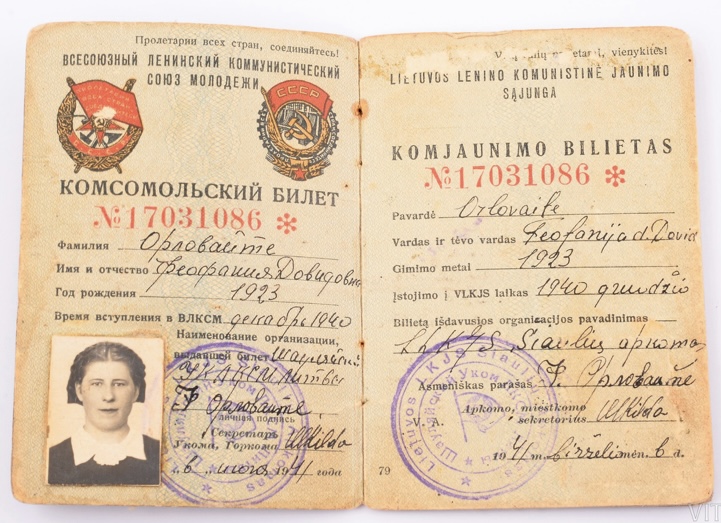 Пролетарии всех стран, соединяйтесь!
ВСЕСОЮЗНЫЙ ЛЕНИНСКИЙ КОММУНИСТИЧЕСКИЙ
СОЮЗ МОЛОДЕЖИ
СССР
КОМСОМОЛЬСКИЙ БИЛЕТ
№17031086 *
Фамилия Орловайте
Имя и отчество Феофания Давидовна
Год рождения 1923
Время вступления в ВЛКСМ декабрь 1940
Наименование организации,
выдавшей билет Шауляйский
УК ЛКСМ Литвы
Ф Орловайте
личная подпись
Секретарь
Укома, Горкома
"6" июня 1941 года
vienykitės!
LIETUVOS LENINO KOMUNISTINĖ JAUNIMO
SĄJUNGA
KOMJAUNIMO BILIETAS
№17031086 *
Pavardė Orlovaitė
Vardas ir tėvo vardas Feofanija d. Dovid
Gimimo metai 1923
Įstojimo į VLKJS laikas 1940 gruodžio
Bilietą išdavusios organizacijos pavadinimas
LLKJS Šiaulių apkomas
Asmeniškas parašas Ф. Орловайте
Apkomo, miestkomo
V. A. sekretorius
1941 m. birželio mėn. 6 d.
79